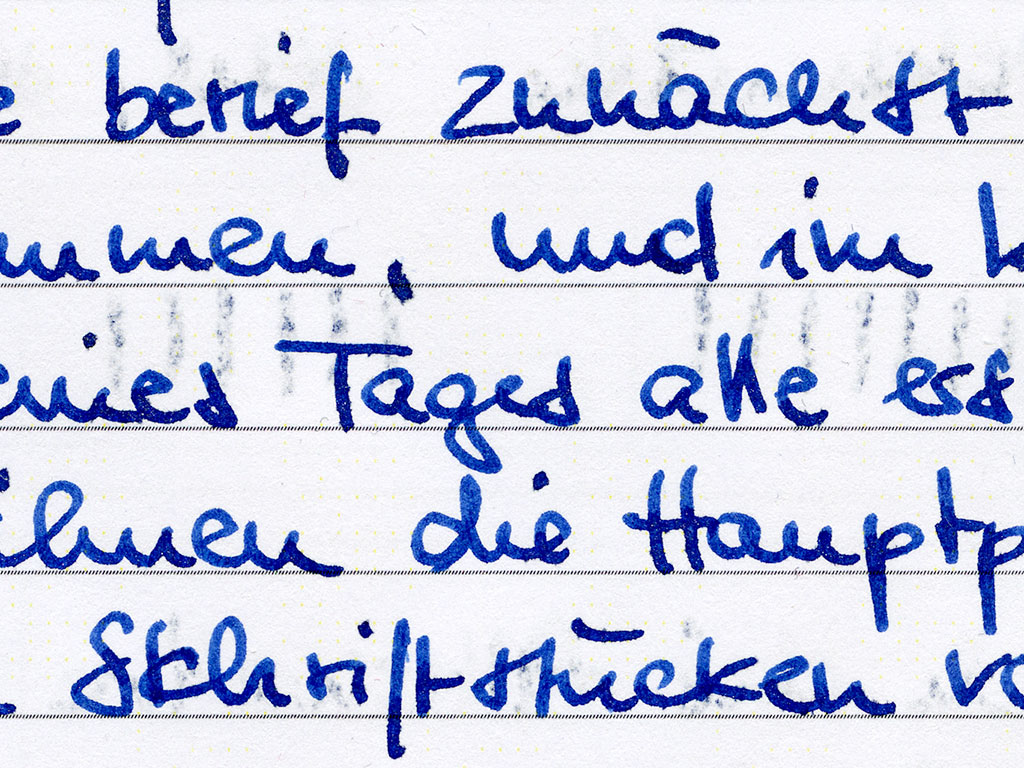 e berief zunächst
ummen, und im k
eines Tages alle ers
ihnen die Hauptp
Schriftstücken vo